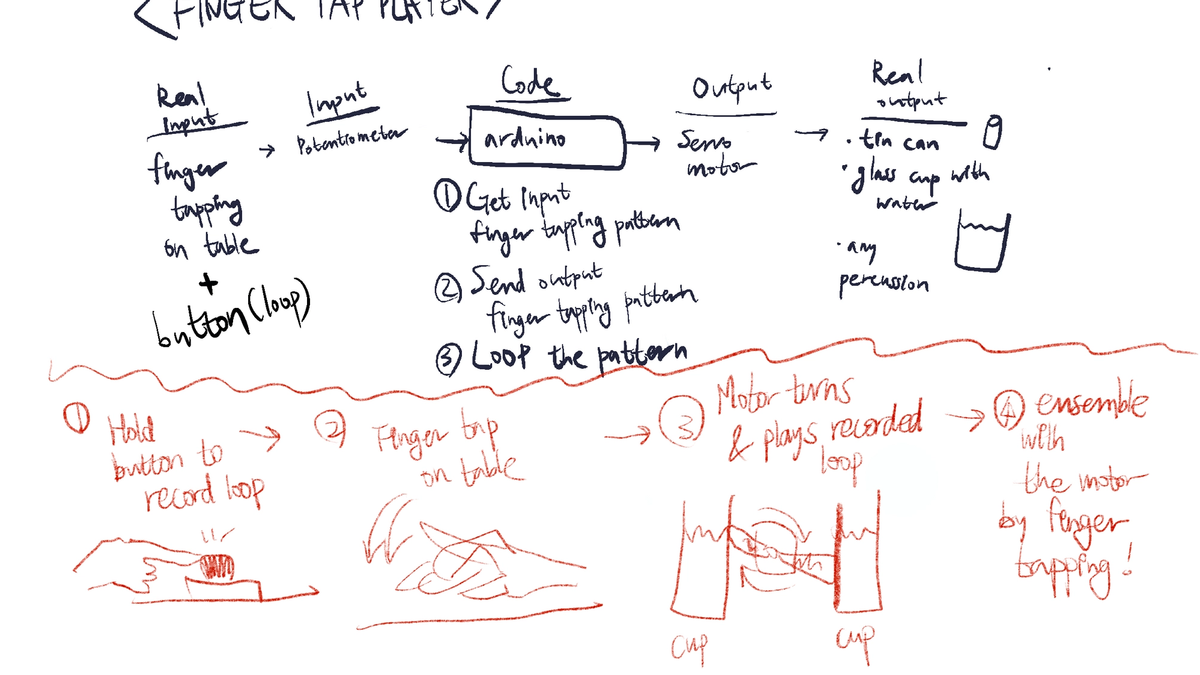 <FINGER TAP PLAYER>
Real
Input
finger
tapping
on table
+
button (loop)
Input
Potentiometer
Code
arduino
① Get Input
finger tapping pattern
② Send output
finger tapping pattern
③ Loop the pattern
Output
Servo
motor
Real
output
· tin can
· glass cup with
water
· any
percussion
① Hold
button to
record loop
② Finger tap
on table
③ Motor turns
& plays recorded
loop
cup
cup
④ ensemble
with
the motor
by finger
tapping!